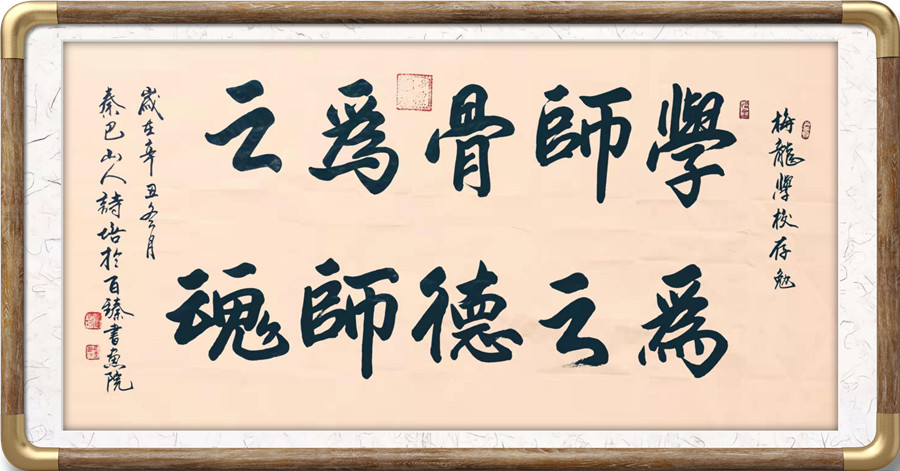 梅龍學校存勉
學爲
師之
骨德
爲師
之魂
歲在辛丑冬月
秦巴山人詩培於百臻書畫院